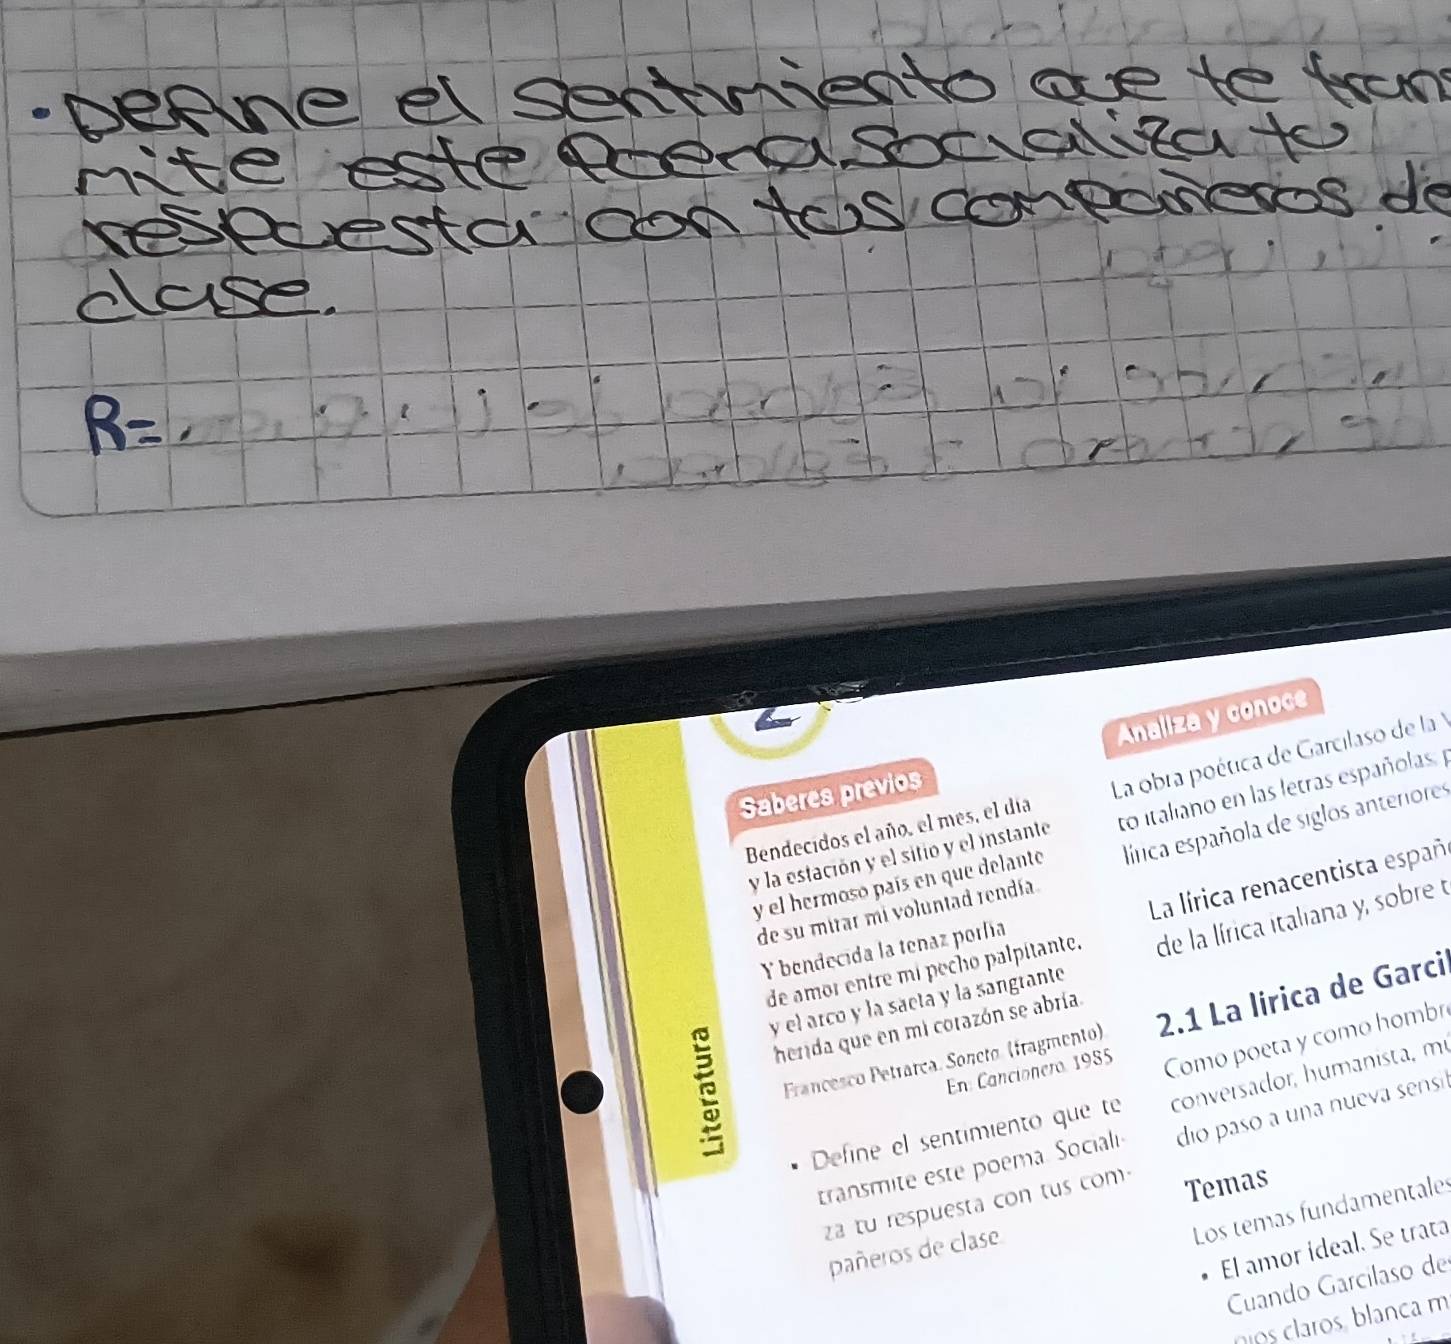 •Define el sentimiento que te trans
mite este Poema. Socializa tu
respuesta con tus compañeros de
clase.
R=
Saberes previos
Bendecidos el año, el mes, el día
y la estación y el sitio y el instante
y el hermoso país en que delante
de su mirar mi voluntad rendía.
Y bendecida la tenaz porfía
de amor entre mi pecho palpitante,
y el arco y la saeta y la sangrante
herida que en mi corazón se abría.
Francesco Petrarca. Soneto (fragmento)
En: Cancionero, 1985
• Define el sentimiento que te
transmite este poema. Sociali-
za tu respuesta con tus com-
pañeros de clase
Literatura
Analiza y conoce
La obra poética de Garcilaso de la V
to italiano en las letras españolas, p
lírica española de siglos anteriores
La lírica renacentista españ
de la lírica italiana y, sobre t
2.1 La lírica de Garcil
Como poeta y como hombre
conversador, humanista, mú
dio paso a una nueva sensib
Temas
Los temas fundamentales
• El amor ideal. Se trata
Cuando Garcilaso des
ojos claros, blanca m